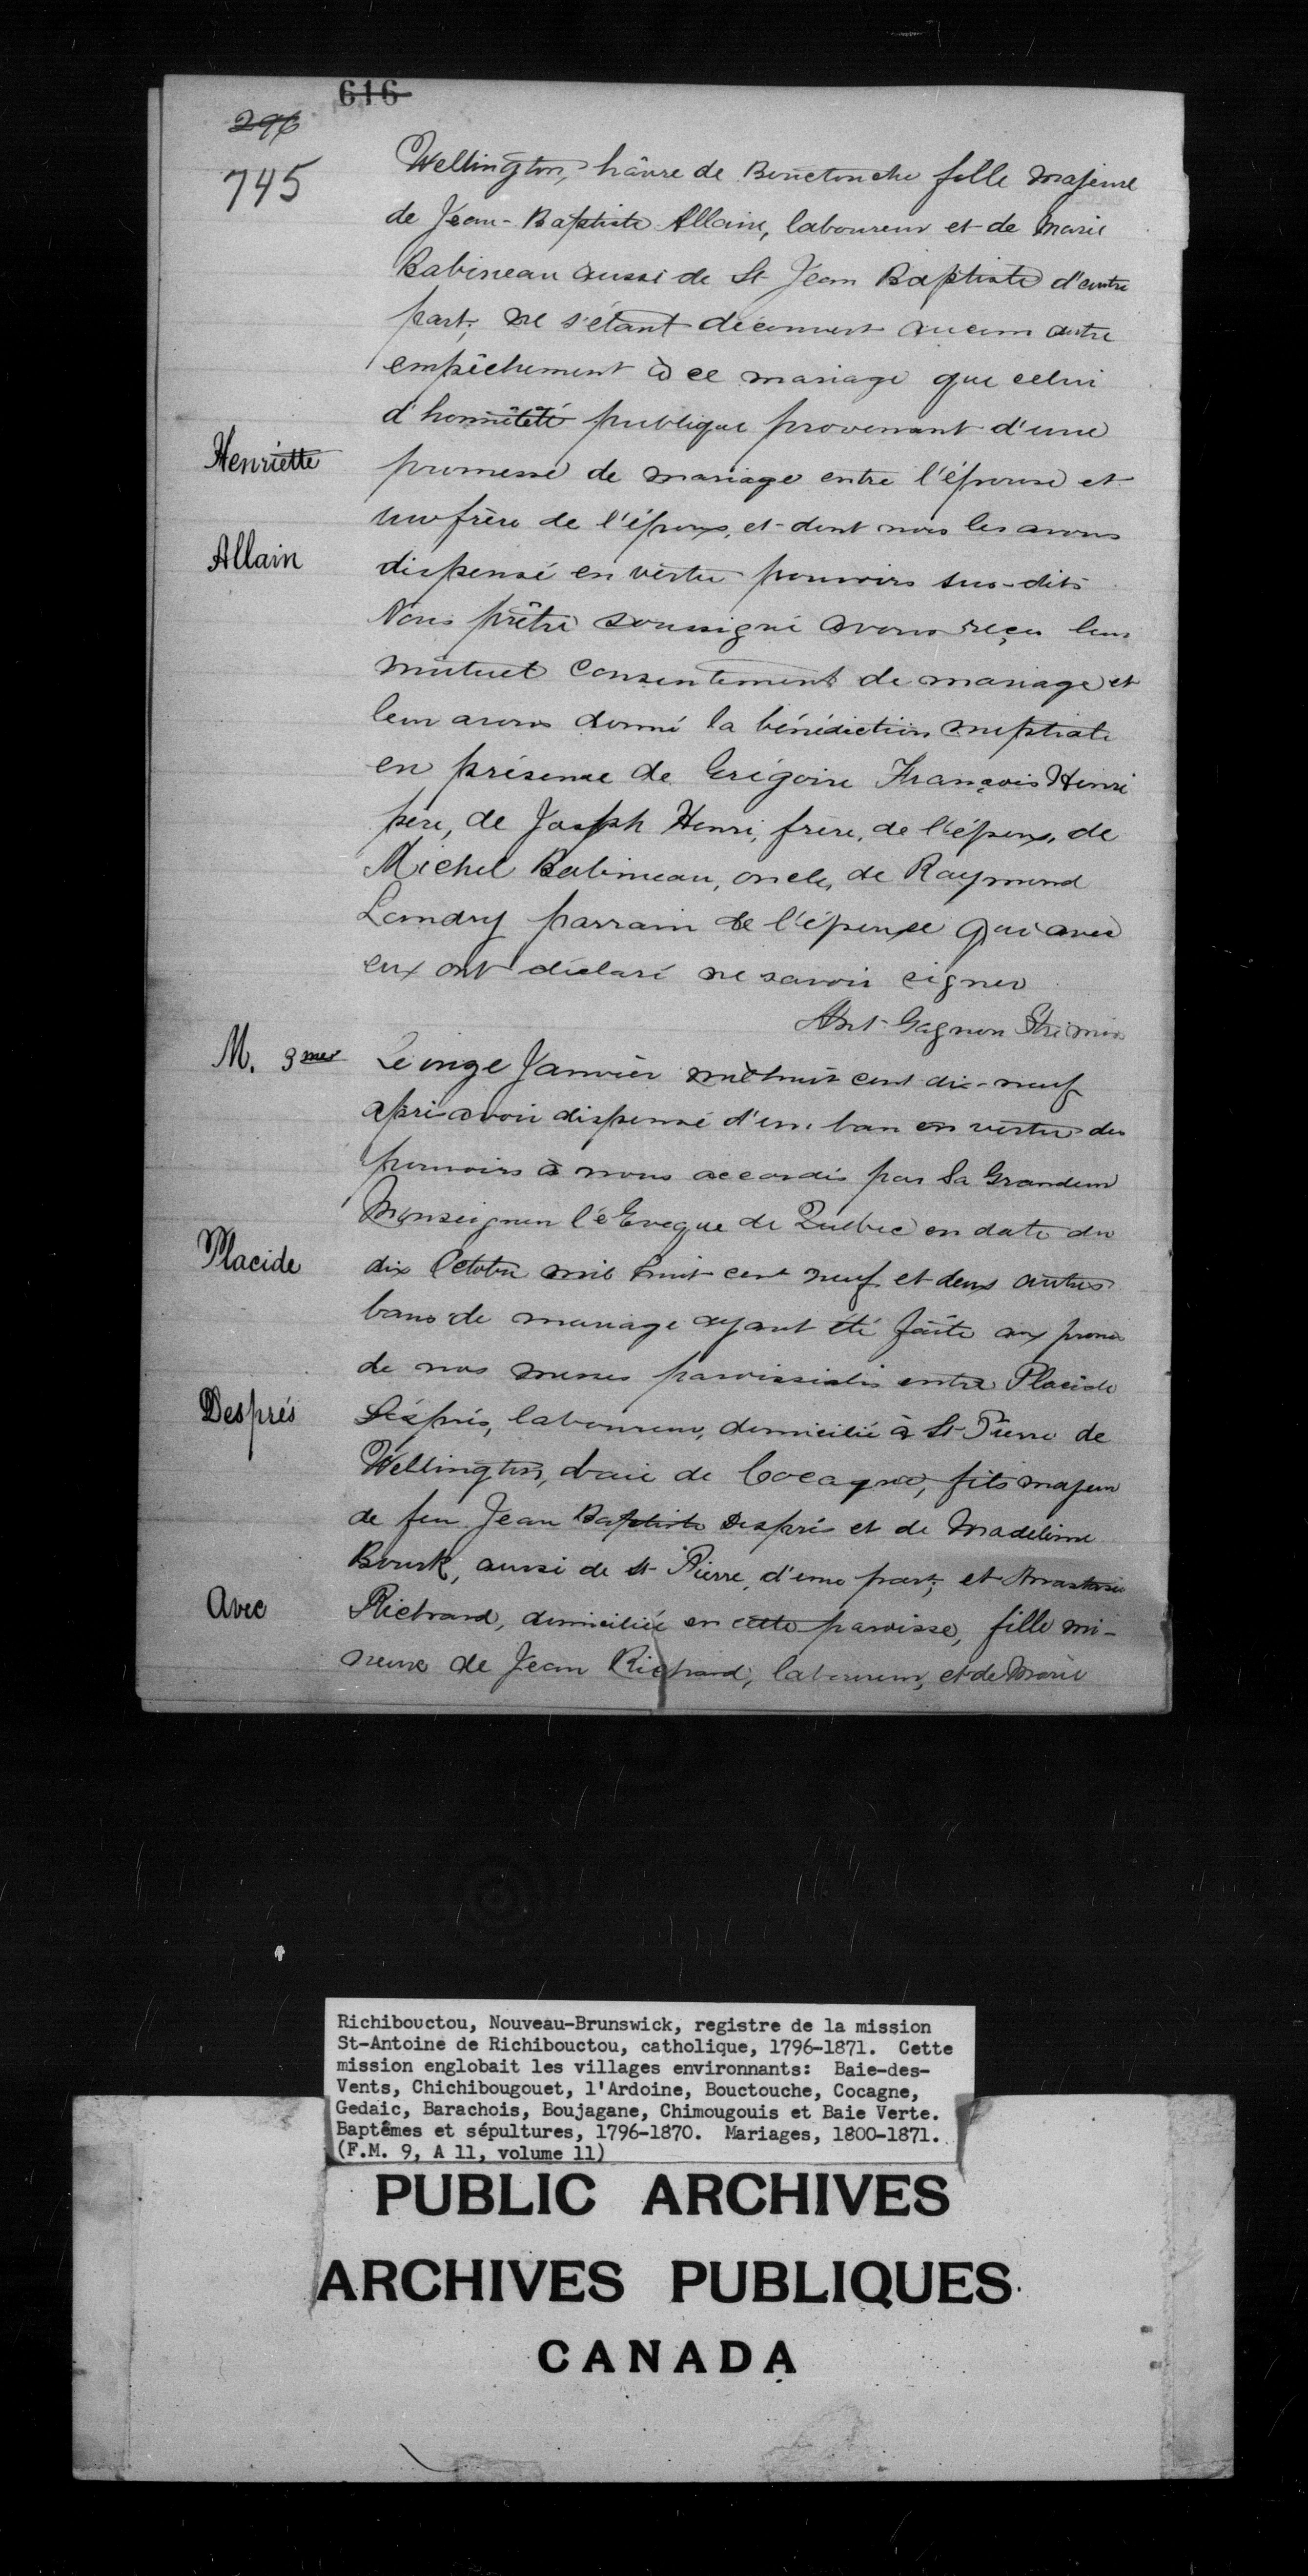 616
296
745
Wellington, hâvre de Bouctouche fille majeure
de Jean-Baptiste Allain, laboureur et de Marie
Babineau aussi de St Jean Baptiste d'autre
part; ne s'étant découvert aucun autre
empêchement à ce mariage que celui
d'honnêteté publique provenant d'une
Henriette
promesse de mariage entre l'épouse et
un frère de l'époux, et dont nous les avons
Allain
dispensé en vertu pouvoirs sus-dits
Nous prêtre soussigné avons reçu leur
mutuel consentement de mariage et
leur avons donné la bénédiction nuptiale
en présence de Grégoire François Henri
père, de Joseph Henri, frère, de l'époux, de
Michel Babineau, oncle, de Raymond
Landry parrain de l'épouse qui avec
eux ont déclaré ne savoir signer
Ant Gagnon Ptre miss
M. 3me
Le onze Janvier mil huit cent dix-neuf
après avoir dispensé d'un ban en vertu des
pouvoirs à nous accordés par Sa Grandeur
Monseigneur l'Evêque de Québec en date du
Placide
dix Octobre mil huit cent neuf et deux autres
bans de mariage ayant été faite aux prones
de nos messes paroissiales entre Placide
Després
Després, laboureur, domicilié à St Pierre de
Wellington, baie de Cocagne, fils majeur
de feu Jean Baptiste Després et de Madeleine
Bourk, aussi de St Pierre, d'une part; et Anastasie
Avec
Richard, domiciliée en cette paroisse, fille mi-
neure de Jean Richard, laboureur, et de Marie
Richibouctou, Nouveau-Brunswick, registre de la mission
St-Antoine de Richibouctou, catholique, 1796-1871. Cette
mission englobait les villages environnants: Baie-des-
Vents, Chichibougouet, l'Ardoine, Bouctouche, Cocagne,
Gedaic, Barachois, Boujagane, Chimougouis et Baie Verte.
Baptêmes et sépultures, 1796-1870. Mariages, 1800-1871.
(F.M. 9, A 11, volume 11)
PUBLIC ARCHIVES
ARCHIVES PUBLIQUES
CANADA